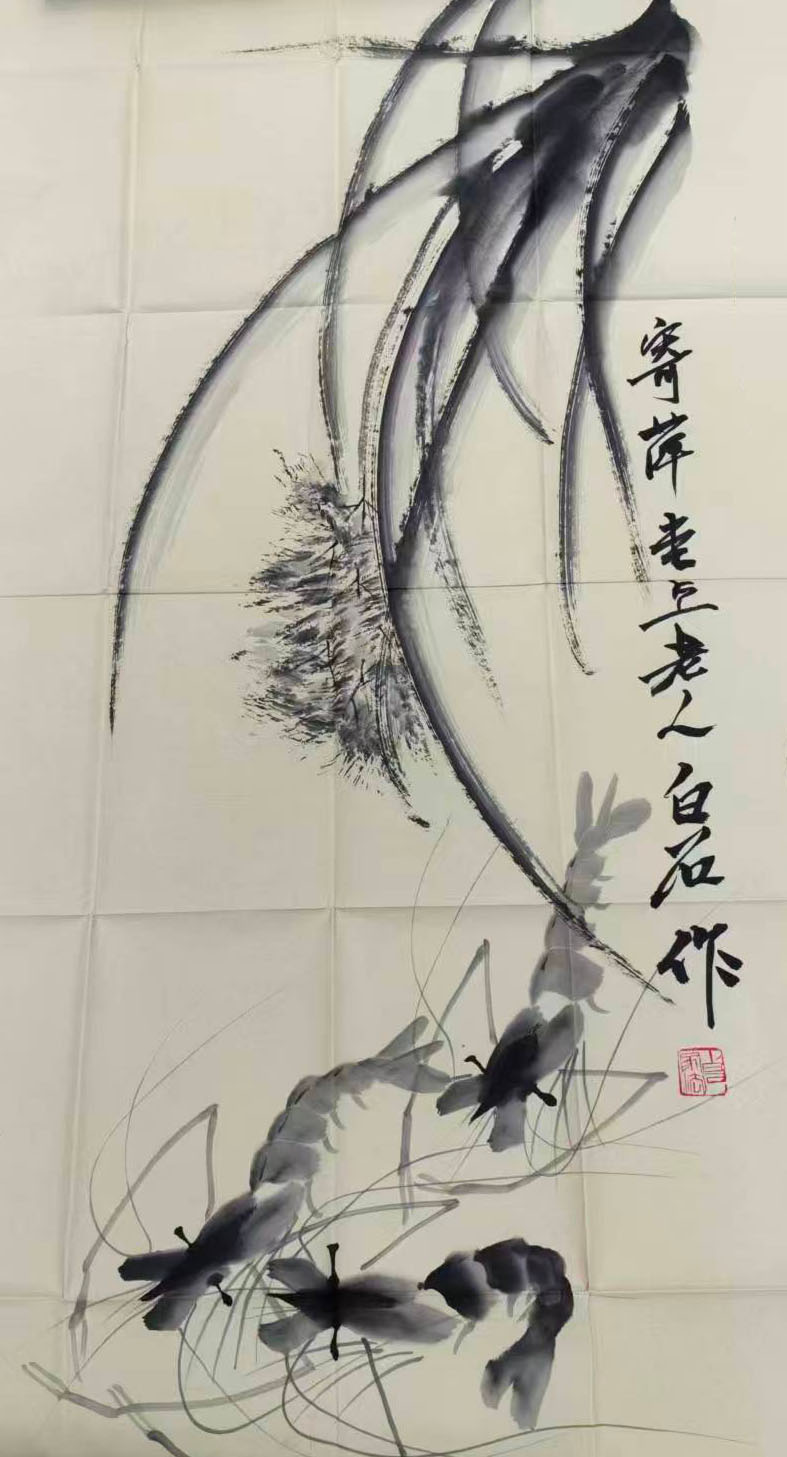 寄萍堂上老人白石作